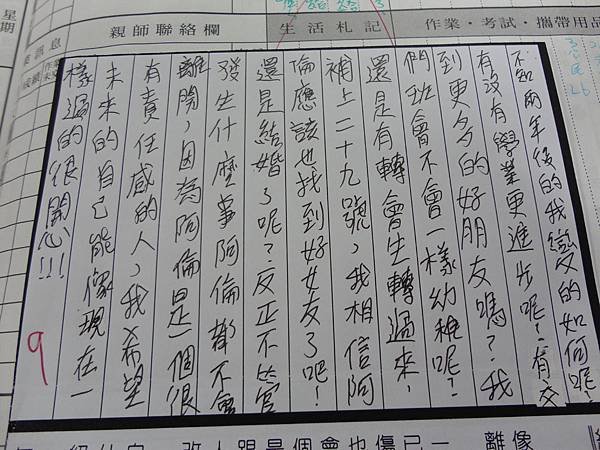 親師聯絡欄
生活札記
作業・考試・攜帶用品
星期
不知兩年後的我變的如何呢?
有沒有學業更進步呢?有交
到更多的好朋友嗎?我
們班會不會一樣幼稚呢?
還是有轉會生轉過來,
補上二十九號,我相信阿
倫應該也找到好女友了吧!
還是結婚了呢?反正不管
發生什麼事阿倫都不會
離開,因為阿倫是一個很
有責任感的人,我又希望
未來的自己能像現在一
樣過的很開心!!!
9